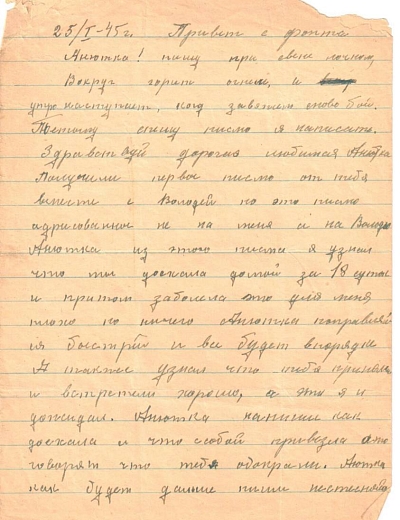 25/I-45г. Привет с фронта
Анютка! пишу при свече ночном,
Вокруг горит огней, и
утро наступит, когд завяжем снова бой.
Потому спешу письмо я написать.
Здравствуй дорогая любимая Анютка
Получили первое письмо от тебя
вместе с Володей но это письмо
адрисованное не на меня а на Володю
Анютка из этого письма я узнал
что ты доехала домой за 18 суток
и притом заболела это для меня
плохо но ничего Анютка поправляй
ся быстрей и все будет впорядке
А также узнал что тебя приняли
и встретили хорошо, а это я и
дожидал. Анютка напиши как
доехала и что с собой привезла а то
говорят что тебя обокрали. Анютка
как будет дальше пиши нестесняйся